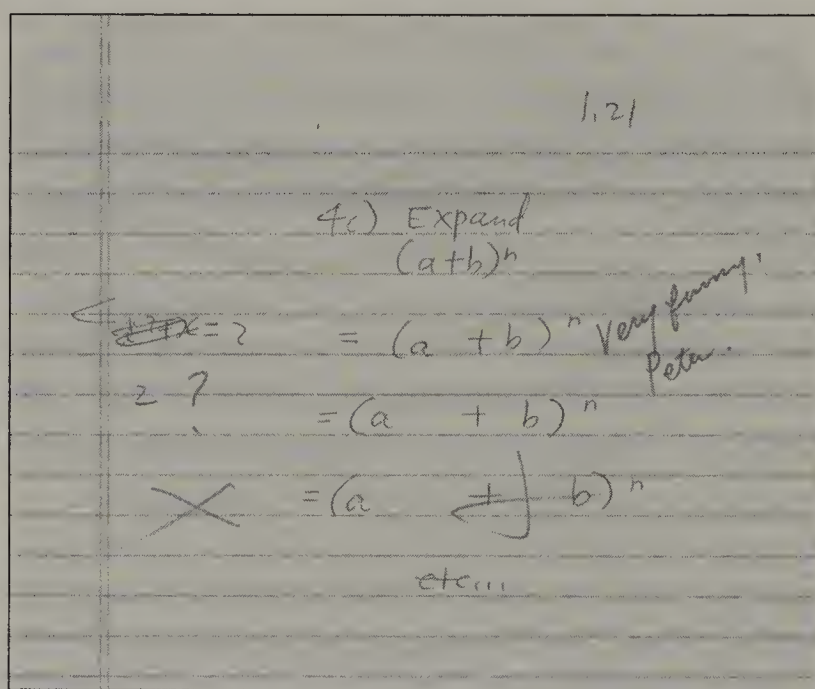 1.21
4c) Expand
(a+b)ⁿ
=?  = (a + b)ⁿ Very funny.
Peter.
z ? = (a + b)ⁿ
= (a + b)ⁿ
etc...